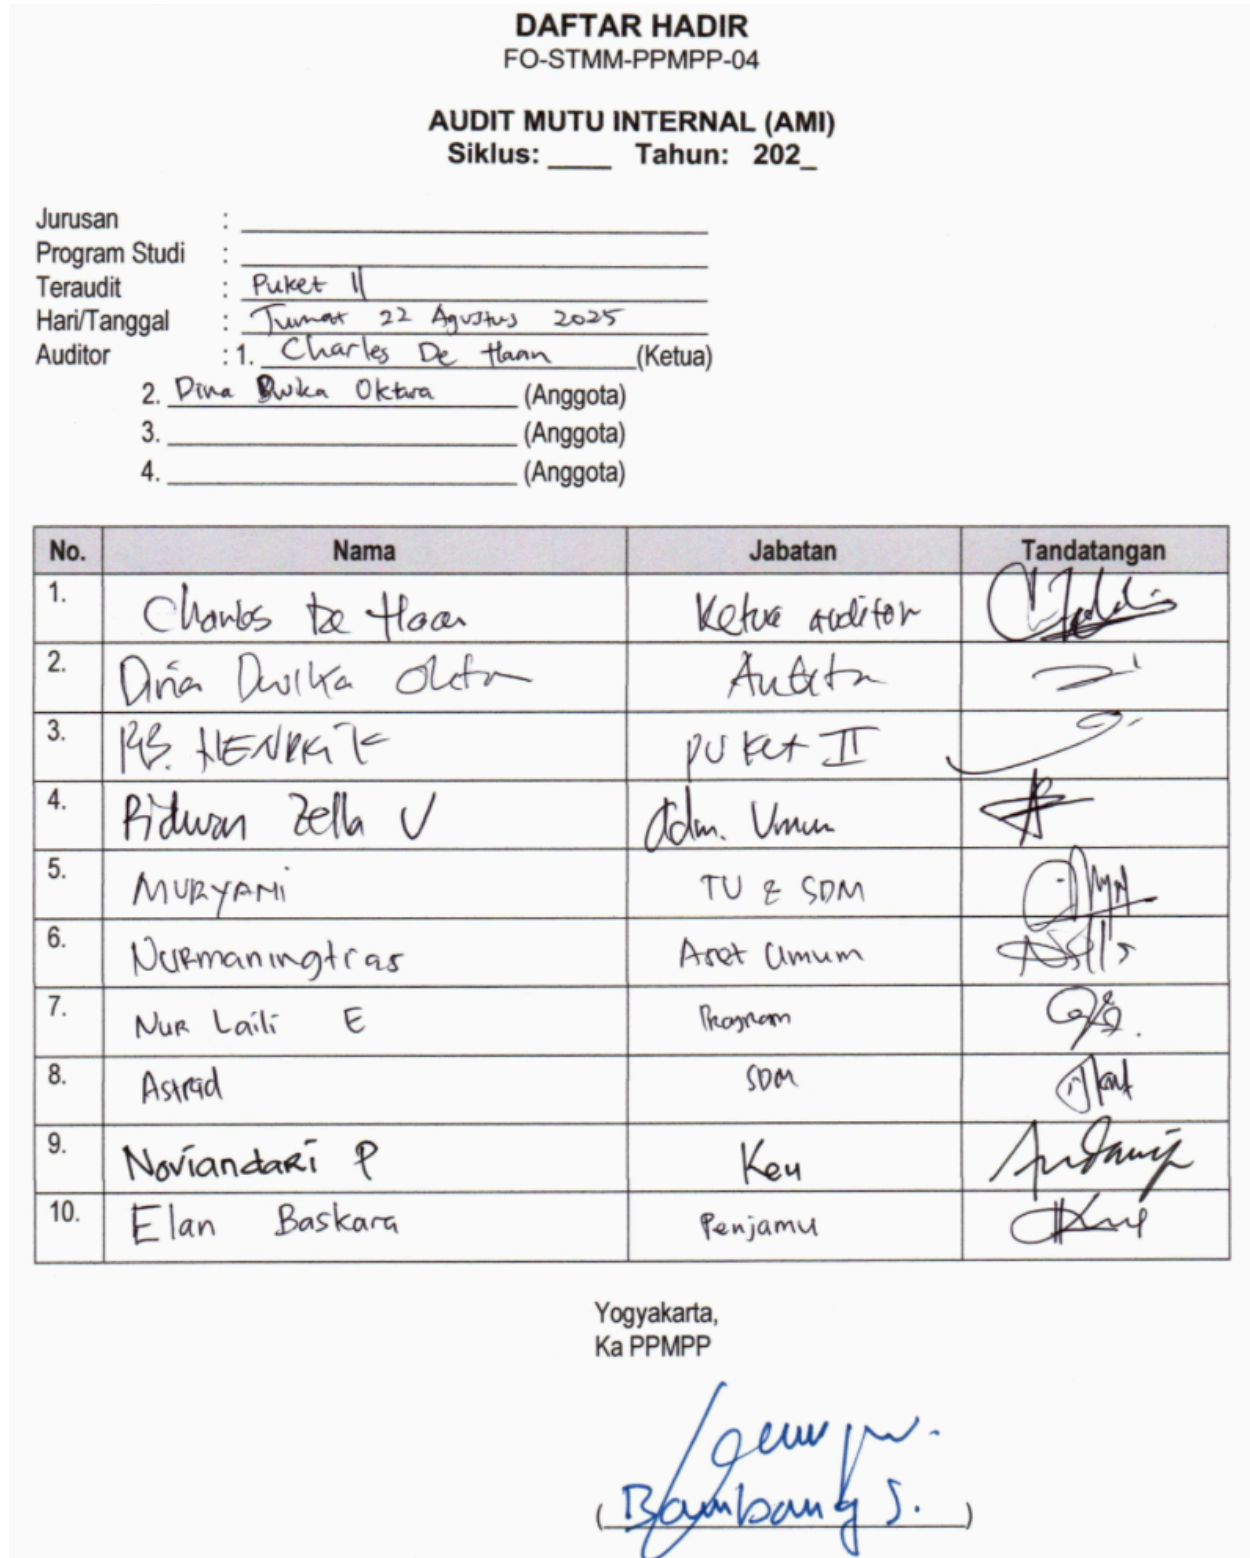 DAFTAR HADIR
FO-STMM-PPMPP-04
AUDIT MUTU INTERNAL (AMI)
Siklus: ____ Tahun: 202_
Jurusan :
Program Studi :
Teraudit : Puket II
Hari/Tanggal : Jumat 22 Agustus 2025
Auditor : 1. Charles De Haan (Ketua)
2. Dina Dwika Oktara (Anggota)
3. (Anggota)
4. (Anggota)
No. Nama Jabatan Tandatangan
1. Charles De Haan Ketua auditor
2. Dina Dwika Auditor
3. PUKET II
4. Ridwan Zella V Adm. Umum
5. MURYANI TU & SDM
6. Nurmaningtias Aset Umum
7. Nur Laili E Program
8. Astrid SDM
9. Noviandari P Keu
10. Elan Baskara Penjamu
Yogyakarta,
Ka PPMPP
(Bambang S.)